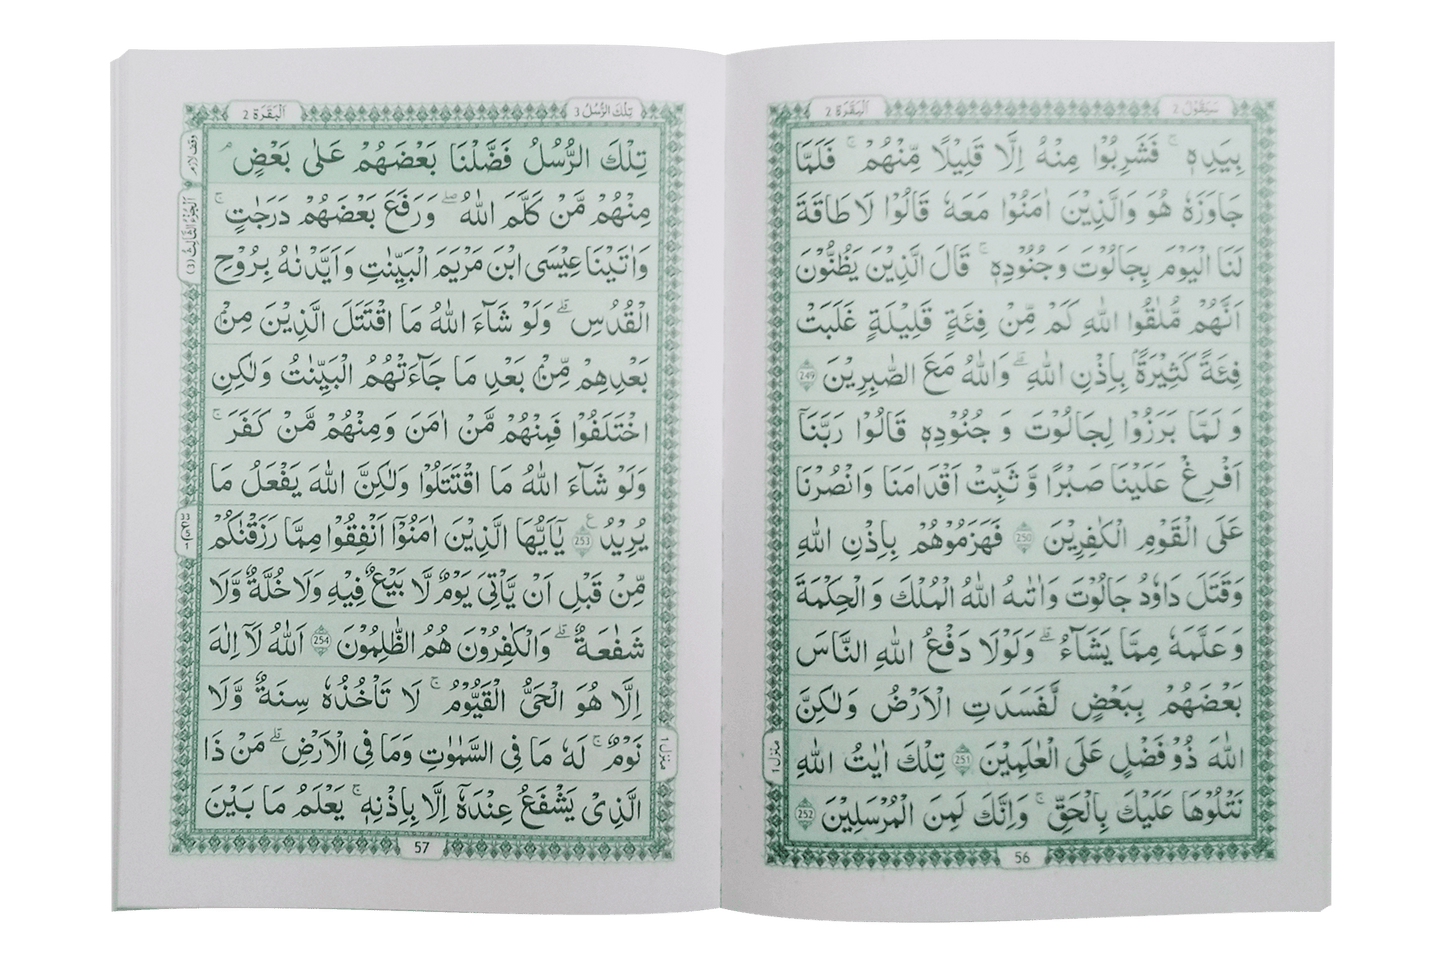 سَيَقُوْلُ 2
اَلْبَقَرَة 2
بِيَدِهٖ ۚ فَشَرِبُوْا مِنْهُ اِلَّا قَلِيْلًا مِّنْهُمْ ۚ فَلَمَّا
جَاوَزَهٗ هُوَ وَالَّذِيْنَ اٰمَنُوْا مَعَهٗ قَالُوْا لَا طَاقَةَ
لَنَا الْيَوْمَ بِجَالُوْتَ وَجُنُوْدِهٖ ۚ قَالَ الَّذِيْنَ يَظُنُّوْنَ
اَنَّهُمْ مُّلٰقُوا اللّٰهِ كَمْ مِّنْ فِئَةٍ قَلِيْلَةٍ غَلَبَتْ
فِئَةً كَثِيْرَةًۢ بِاِذْنِ اللّٰهِ ۗ وَاللّٰهُ مَعَ الصّٰبِرِيْنَ 249
وَ لَمَّا بَرَزُوْا لِجَالُوْتَ وَ جُنُوْدِهٖ قَالُوْا رَبَّنَاۤ
اَفْرِغْ عَلَيْنَا صَبْرًا وَّ ثَبِّتْ اَقْدَامَنَا وَانْصُرْنَا
عَلَى الْقَوْمِ الْكٰفِرِيْنَ 250 فَهَزَمُوْهُمْ بِاِذْنِ اللّٰهِ
وَقَتَلَ دَاوٗدُ جَالُوْتَ وَاٰتٰىهُ اللّٰهُ الْمُلْكَ وَ الْحِكْمَةَ
وَعَلَّمَهٗ مِمَّا يَشَآءُ ۗ وَلَوْلَا دَفْعُ اللّٰهِ النَّاسَ
بَعْضَهُمْ بِبَعْضٍ لَّفَسَدَتِ الْاَرْضُ وَلٰكِنَّ
اللّٰهَ ذُوْ فَضْلٍ عَلَى الْعٰلَمِيْنَ 251 تِلْكَ اٰيٰتُ اللّٰهِ
نَتْلُوْهَا عَلَيْكَ بِالْحَقِّ ۚ وَاِنَّكَ لَمِنَ الْمُرْسَلِيْنَ 252
منزل ١
56
تِلْكَ الرُّسُلُ 3
اَلْبَقَرَة 2
تِلْكَ الرُّسُلُ فَضَّلْنَا بَعْضَهُمْ عَلٰى بَعْضٍ ۘ
مِنْهُمْ مَّنْ كَلَّمَ اللّٰهُ ۖ وَرَفَعَ بَعْضَهُمْ دَرَجٰتٍ ۚ
وَاٰتَيْنَا عِيْسَى ابْنَ مَرْيَمَ الْبَيِّنٰتِ وَاَيَّدْنٰهُ بِرُوْحِ
الْقُدُسِ ۗ وَلَوْ شَآءَ اللّٰهُ مَا اقْتَتَلَ الَّذِيْنَ مِنْۢ
بَعْدِهِمْ مِّنْۢ بَعْدِ مَا جَآءَتْهُمُ الْبَيِّنٰتُ وَلٰكِنِ
اخْتَلَفُوْا فَمِنْهُمْ مَّنْ اٰمَنَ وَمِنْهُمْ مَّنْ كَفَرَ ۚ
وَلَوْ شَآءَ اللّٰهُ مَا اقْتَتَلُوْا وَلٰكِنَّ اللّٰهَ يَفْعَلُ مَا
يُرِيْدُ 253 يٰۤاَيُّهَا الَّذِيْنَ اٰمَنُوْۤا اَنْفِقُوْا مِمَّا رَزَقْنٰكُمْ
مِّنْ قَبْلِ اَنْ يَّاْتِيَ يَوْمٌ لَّا بَيْعٌ فِيْهِ وَلَا خُلَّةٌ وَّلَا
شَفَاعَةٌ ۗ وَالْكٰفِرُوْنَ هُمُ الظّٰلِمُوْنَ 254 اَللّٰهُ لَاۤ اِلٰهَ
اِلَّا هُوَ الْحَيُّ الْقَيُّوْمُ ۚ لَا تَاْخُذُهٗ سِنَةٌ وَّلَا
نَوْمٌ ۚ لَهٗ مَا فِى السَّمٰوٰتِ وَمَا فِى الْاَرْضِ ۗ مَنْ ذَا
الَّذِيْ يَشْفَعُ عِنْدَهٗۤ اِلَّا بِاِذْنِهٖ ۚ يَعْلَمُ مَا بَيْنَ
وقف لازم
اَلْجُزْءُ الثَّالِثُ (3)
33
ع
1
منزل ١
57